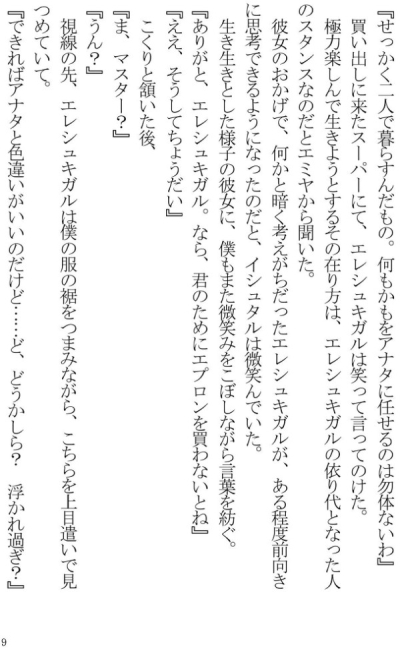 『せっかく二人で暮らすんだもの。何もかもをアナタに任せるのは勿体ないわ』
　買い出しに来たスーパーにて、エレシュキガルは笑って言ってのけた。
　極力楽しんで生きようとするその在り方は、エレシュキガルの依り代となった人
のスタンスなのだとエミヤから聞いた。
　彼女のおかげで、何かと暗く考えがちだったエレシュキガルが、ある程度前向き
に思考できるようになったのだと、イシュタルは微笑んでいた。
　生き生きとした様子の彼女に、僕もまた微笑みをこぼしながら言葉を紡ぐ。
『ありがと、エレシュキガル。なら、君のためにエプロンを買わないとね』
『ええ、そうしてちょうだい』
　こくりと頷いた後、
『ま、マスター？』
『うん？』
　視線の先、エレシュキガルは僕の服の裾をつまみながら、こちらを上目遣いで見
つめていて。
『できればアナタと色違いがいいのだけど……ど、どうかしら？　浮かれ過ぎ？』
9